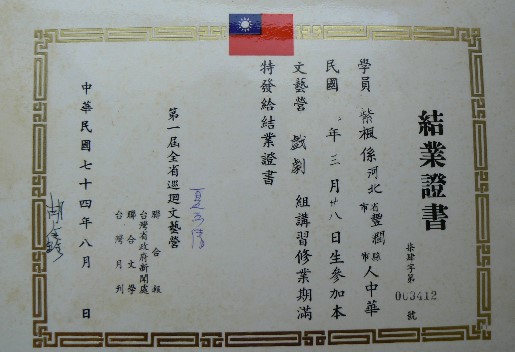 結業證書
柒肆字第 003412 號
學員 紫楓係河北省市豐潤縣市人中華
民國 年三月廿八日生參加本
文藝營 戲劇 組講習修業期滿
特發給結業證書
第一屆全省巡迴文藝營
聯合報
台灣省政府新聞處
聯合文學
台灣月刊
中華民國七十四年八月 日